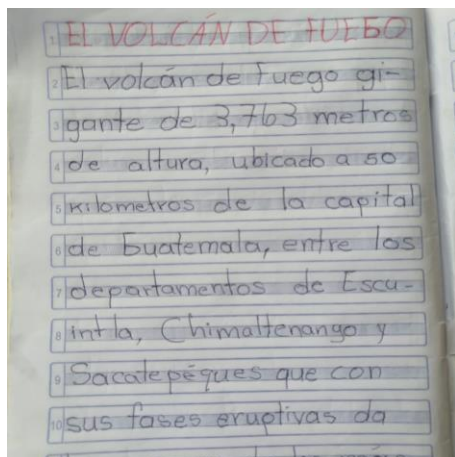 EL VOLCÁN DE FUEGO
El volcán de fuego gi-
gante de 3,763 metros
de altura, ubicado a 50
kilometros de la capital
de Guatemala, entre los
departamentos de Escu-
intla, Chimaltenango y
Sacatepéques que con
sus fases eruptivas da